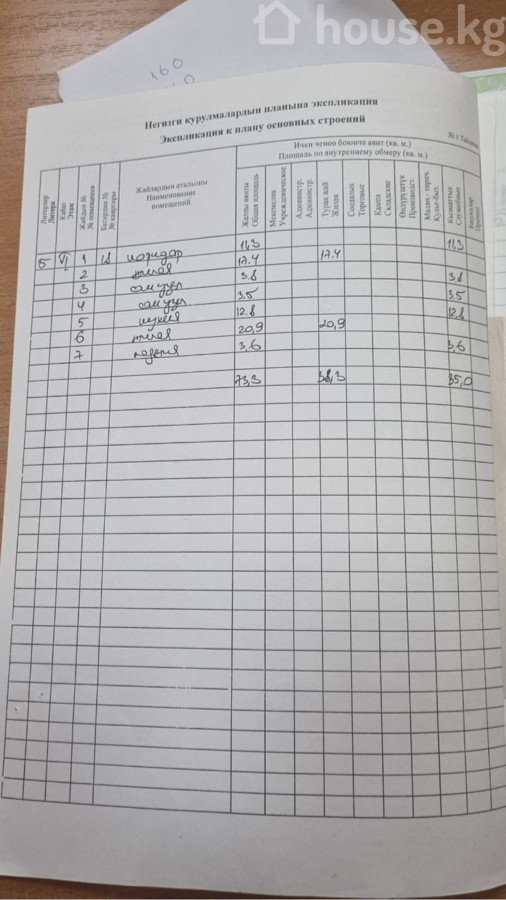 house.kg
160
Негизги курулмалардын планына экспликация
Экспликация к плану основных строений
№ 1 Таблица
Ички ченөө боюнча аянт (кв. м.)
Площадь по внутреннему обмеру (кв. м.)
Литерлер Литера
Кабат Этаж
Жайдын № № помещения
Батирдин № № квартиры
Жайлардын аталышы Наименование помещений
Жалпы аянты Общая площадь
Мекемелик Учрежденическое
Администр. Администр.
Турак жай Жилая
Соодалык Торговые
Кампа Складские
Өндүрүштүк Производст.
Мадан.-тирич. Культ-быт.
Кызматтык Служебные
Башкалар Прочие
Б VI 1 18 коридор 11,3 11,3
2 жилая 17.4 17.4
3 сан узел 3.8 3.8
4 сан узел 3,5 3,5
5 кухня 12.8 12,8
6 жилая 20,9 20,9
7 лоджия 3.6 3,6
73,3 38,3 35,0